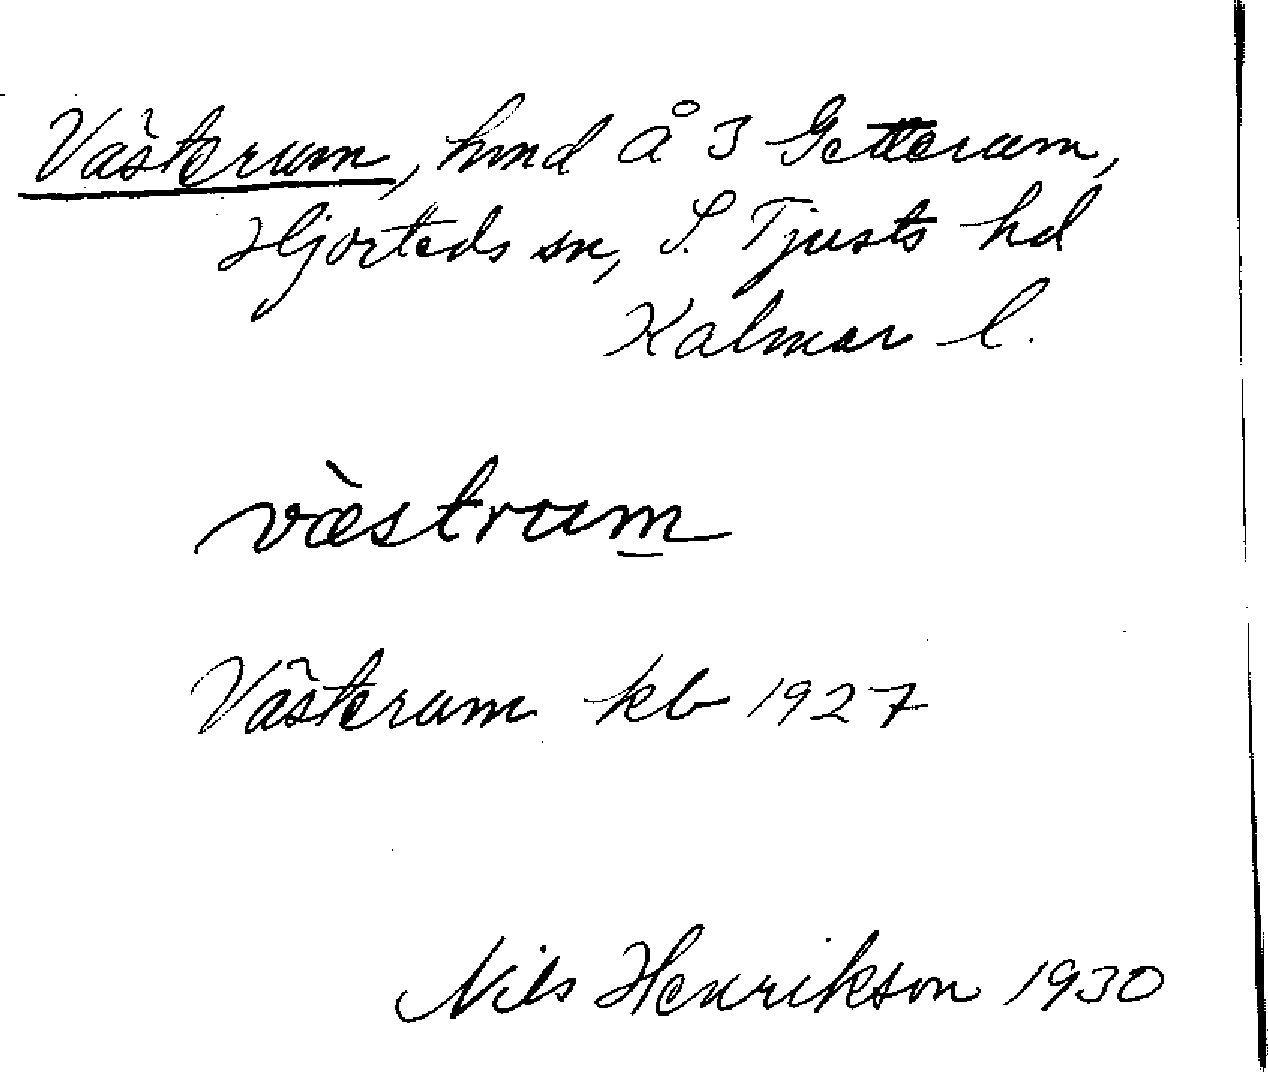 Västerum, hmd å 3 Getteram,
Hjorteds sn, S. Tjusts hd
Kalmar l.
vàestrum
Västerum kb 1927
Nils Henrikson 1930